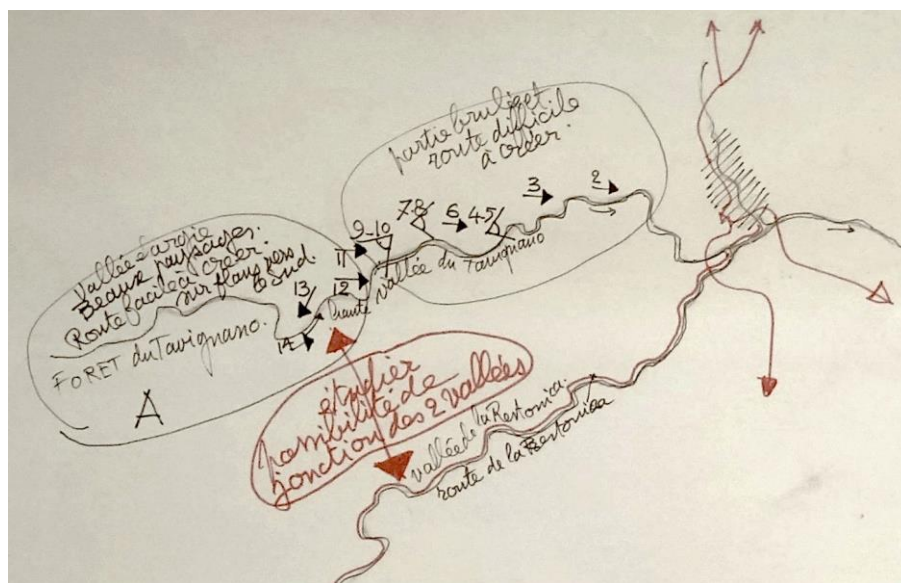 partie brulée et
route difficile
à créer.
3
2
7-8
6
4-5
9-10
11
12
13
14
Vallée élargie
Beaux paysages.
Route facile à créer.
sur flanc vers
le Sud.
haute vallée du Tavignano
FORET du Tavignano.
A
étudier
possibilité de
jonction des 2 vallées
vallée de la Restonica.
route de la Restonica